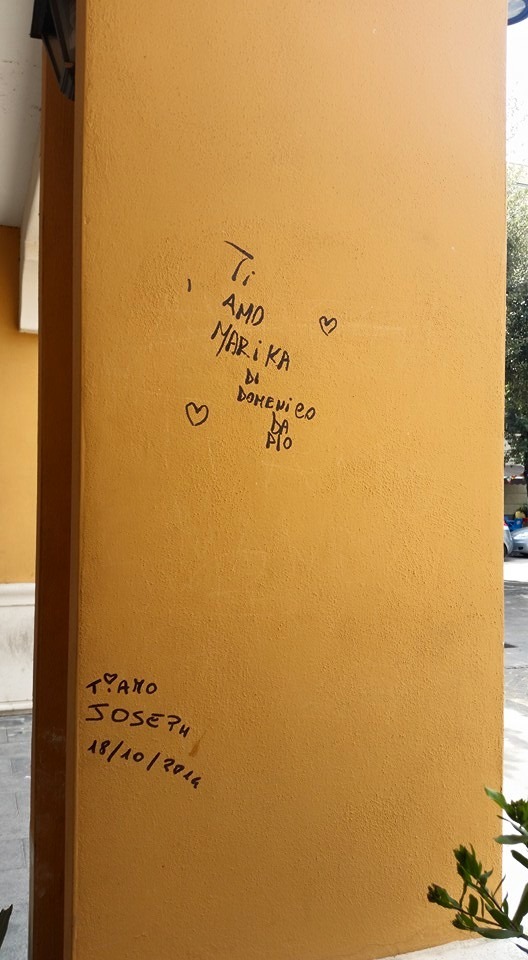 Ti
AMO
MARiKA
Di
DOMENiCO
DA
PIO
Ti AMO
JOSEPH
18/10/2014